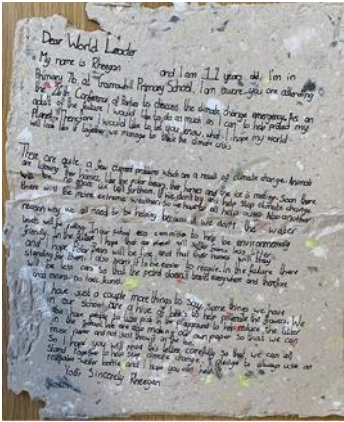 Dear World Leader
My name is Rheegan and I am 11 years old, I'm in
Primary 7b at Primary School. I am aware you are attending
the 26th Conference of Parties to discuss the climate change emergency. As an
adult of the future I would like to do as much as I can to help protect my
Planet. Therefore I would like to let you know what I hope my world
will look like if together we manage to tackle the climate crisis.
There are quite a few current problems which are a result of climate change. Animals
are losing their homes like the Polar bears, their homes and the ice is melting. Soon there
will be no more ice left for them. If we don't try and help stop climate change
there will be more extreme weathers so we need to all help out. Also another
reason why we all need to be helping because if we don't the water
levels will In our school eco committee to help be environmentally
friendly. In the future I hope that our planet will suffer from less litter
and I hope Polar Bears will be fine and that their homes will
standing for them. I also Plants to be easier to recycle. In the future there
will be less cars so that the petrol doesn't travel everywhere and therefore
that means no toxic fumes.
I have just a couple more things to say. Some things we have
in our School are a hive of bees to help pollinate the flowers. We
also have people to use in the playground to help reduce the litter
in our School. We are also making our own paper so that we can
reuse paper and not just throw in the bin.
So I hope you will read this letter carefully so that we can all
Stand Together to help stop climate change. I pledge to always use an
reusable water bottle and I hope you can help.
Your Sincerely Rheegan